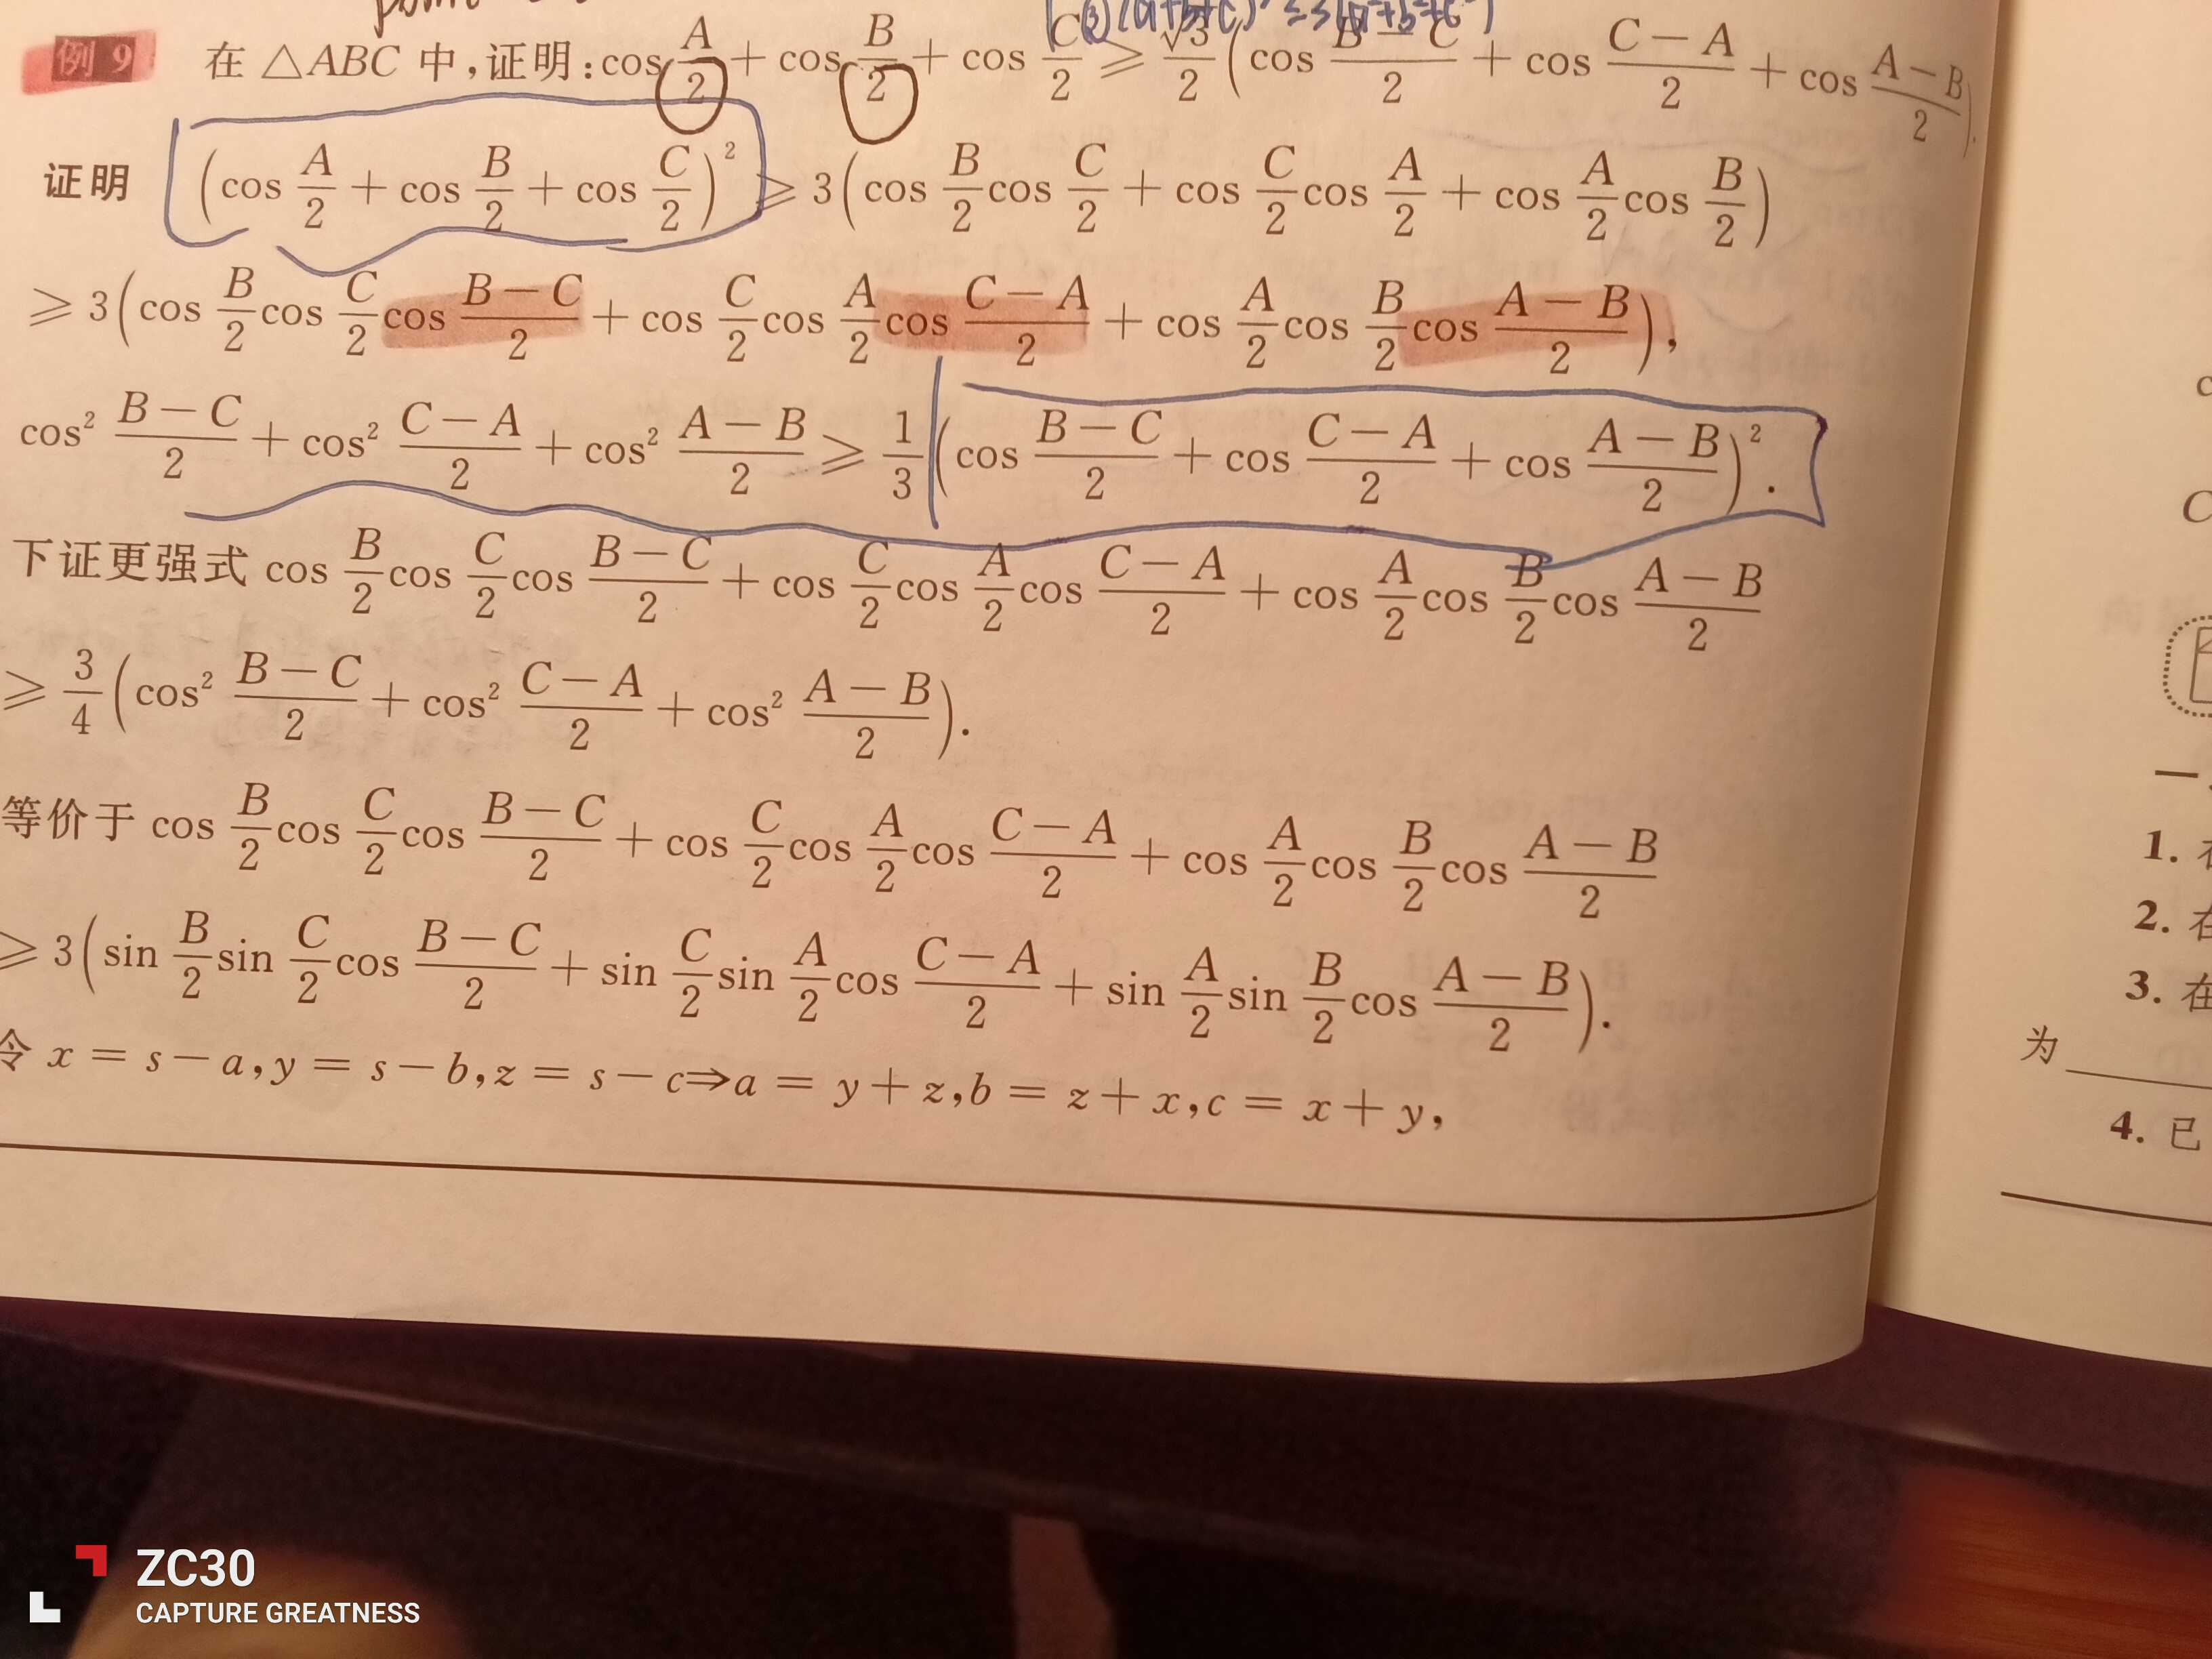 (3) (a+b+c)² ≤ 3(a²+b²+c²)
例 9 在 △ABC 中,证明:cos A/2 + cos B/2 + cos C/2 ⩾ √3/2 (cos (B−C)/2 + cos (C−A)/2 + cos (A−B)/2).
证明 (cos A/2 + cos B/2 + cos C/2)² ⩾ 3(cos B/2 cos C/2 + cos C/2 cos A/2 + cos A/2 cos B/2)
⩾ 3(cos B/2 cos C/2 cos (B−C)/2 + cos C/2 cos A/2 cos (C−A)/2 + cos A/2 cos B/2 cos (A−B)/2),
cos² (B−C)/2 + cos² (C−A)/2 + cos² (A−B)/2 ⩾ 1/3 (cos (B−C)/2 + cos (C−A)/2 + cos (A−B)/2)².
下证更强式 cos B/2 cos C/2 cos (B−C)/2 + cos C/2 cos A/2 cos (C−A)/2 + cos A/2 cos B/2 cos (A−B)/2
⩾ 3/4 (cos² (B−C)/2 + cos² (C−A)/2 + cos² (A−B)/2).
等价于 cos B/2 cos C/2 cos (B−C)/2 + cos C/2 cos A/2 cos (C−A)/2 + cos A/2 cos B/2 cos (A−B)/2
⩾ 3(sin B/2 sin C/2 cos (B−C)/2 + sin C/2 sin A/2 cos (C−A)/2 + sin A/2 sin B/2 cos (A−B)/2).
令 x = s − a, y = s − b, z = s − c ⇒ a = y + z, b = z + x, c = x + y,
C
一
1.
2. 在
3. 在
为
4. 已
ZC30
CAPTURE GREATNESS